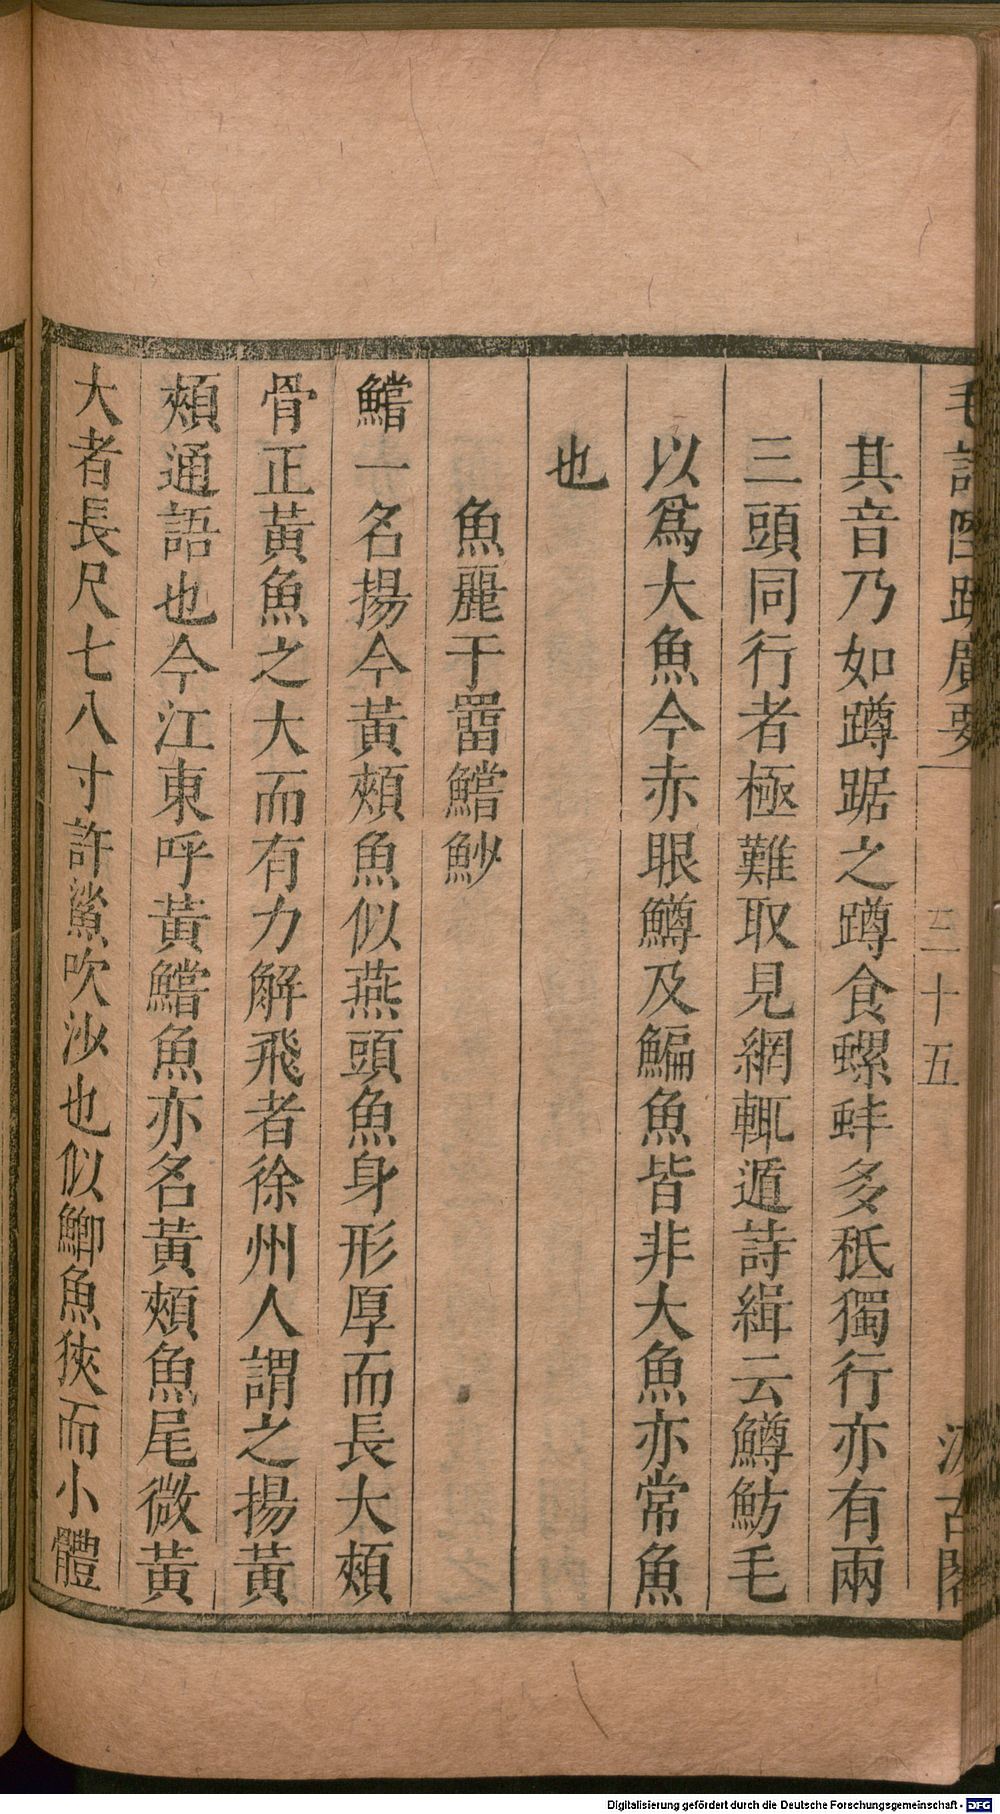 毛詩陸疏廣要
三十五
汲古閣
其音乃如蹲踞之蹲食螺蚌多秪獨行亦有兩
三頭同行者極難取見網輒遁詩緝云鱒魴毛
以爲大魚今赤眼鱒及鯿魚皆非大魚亦常魚
也
魚麗于罶鱨魦
鱨一名揚今黃頰魚似燕頭魚身形厚而長大頰
骨正黃魚之大而有力解飛者徐州人謂之揚黃
頰通語也今江東呼黃鱨魚亦名黃頰魚尾微黃
大者長尺七八寸許鯊吹沙也似鯽魚狹而小體
Digitalisierung gefördert durch die Deutsche Forschungsgemeinschaft - DFG